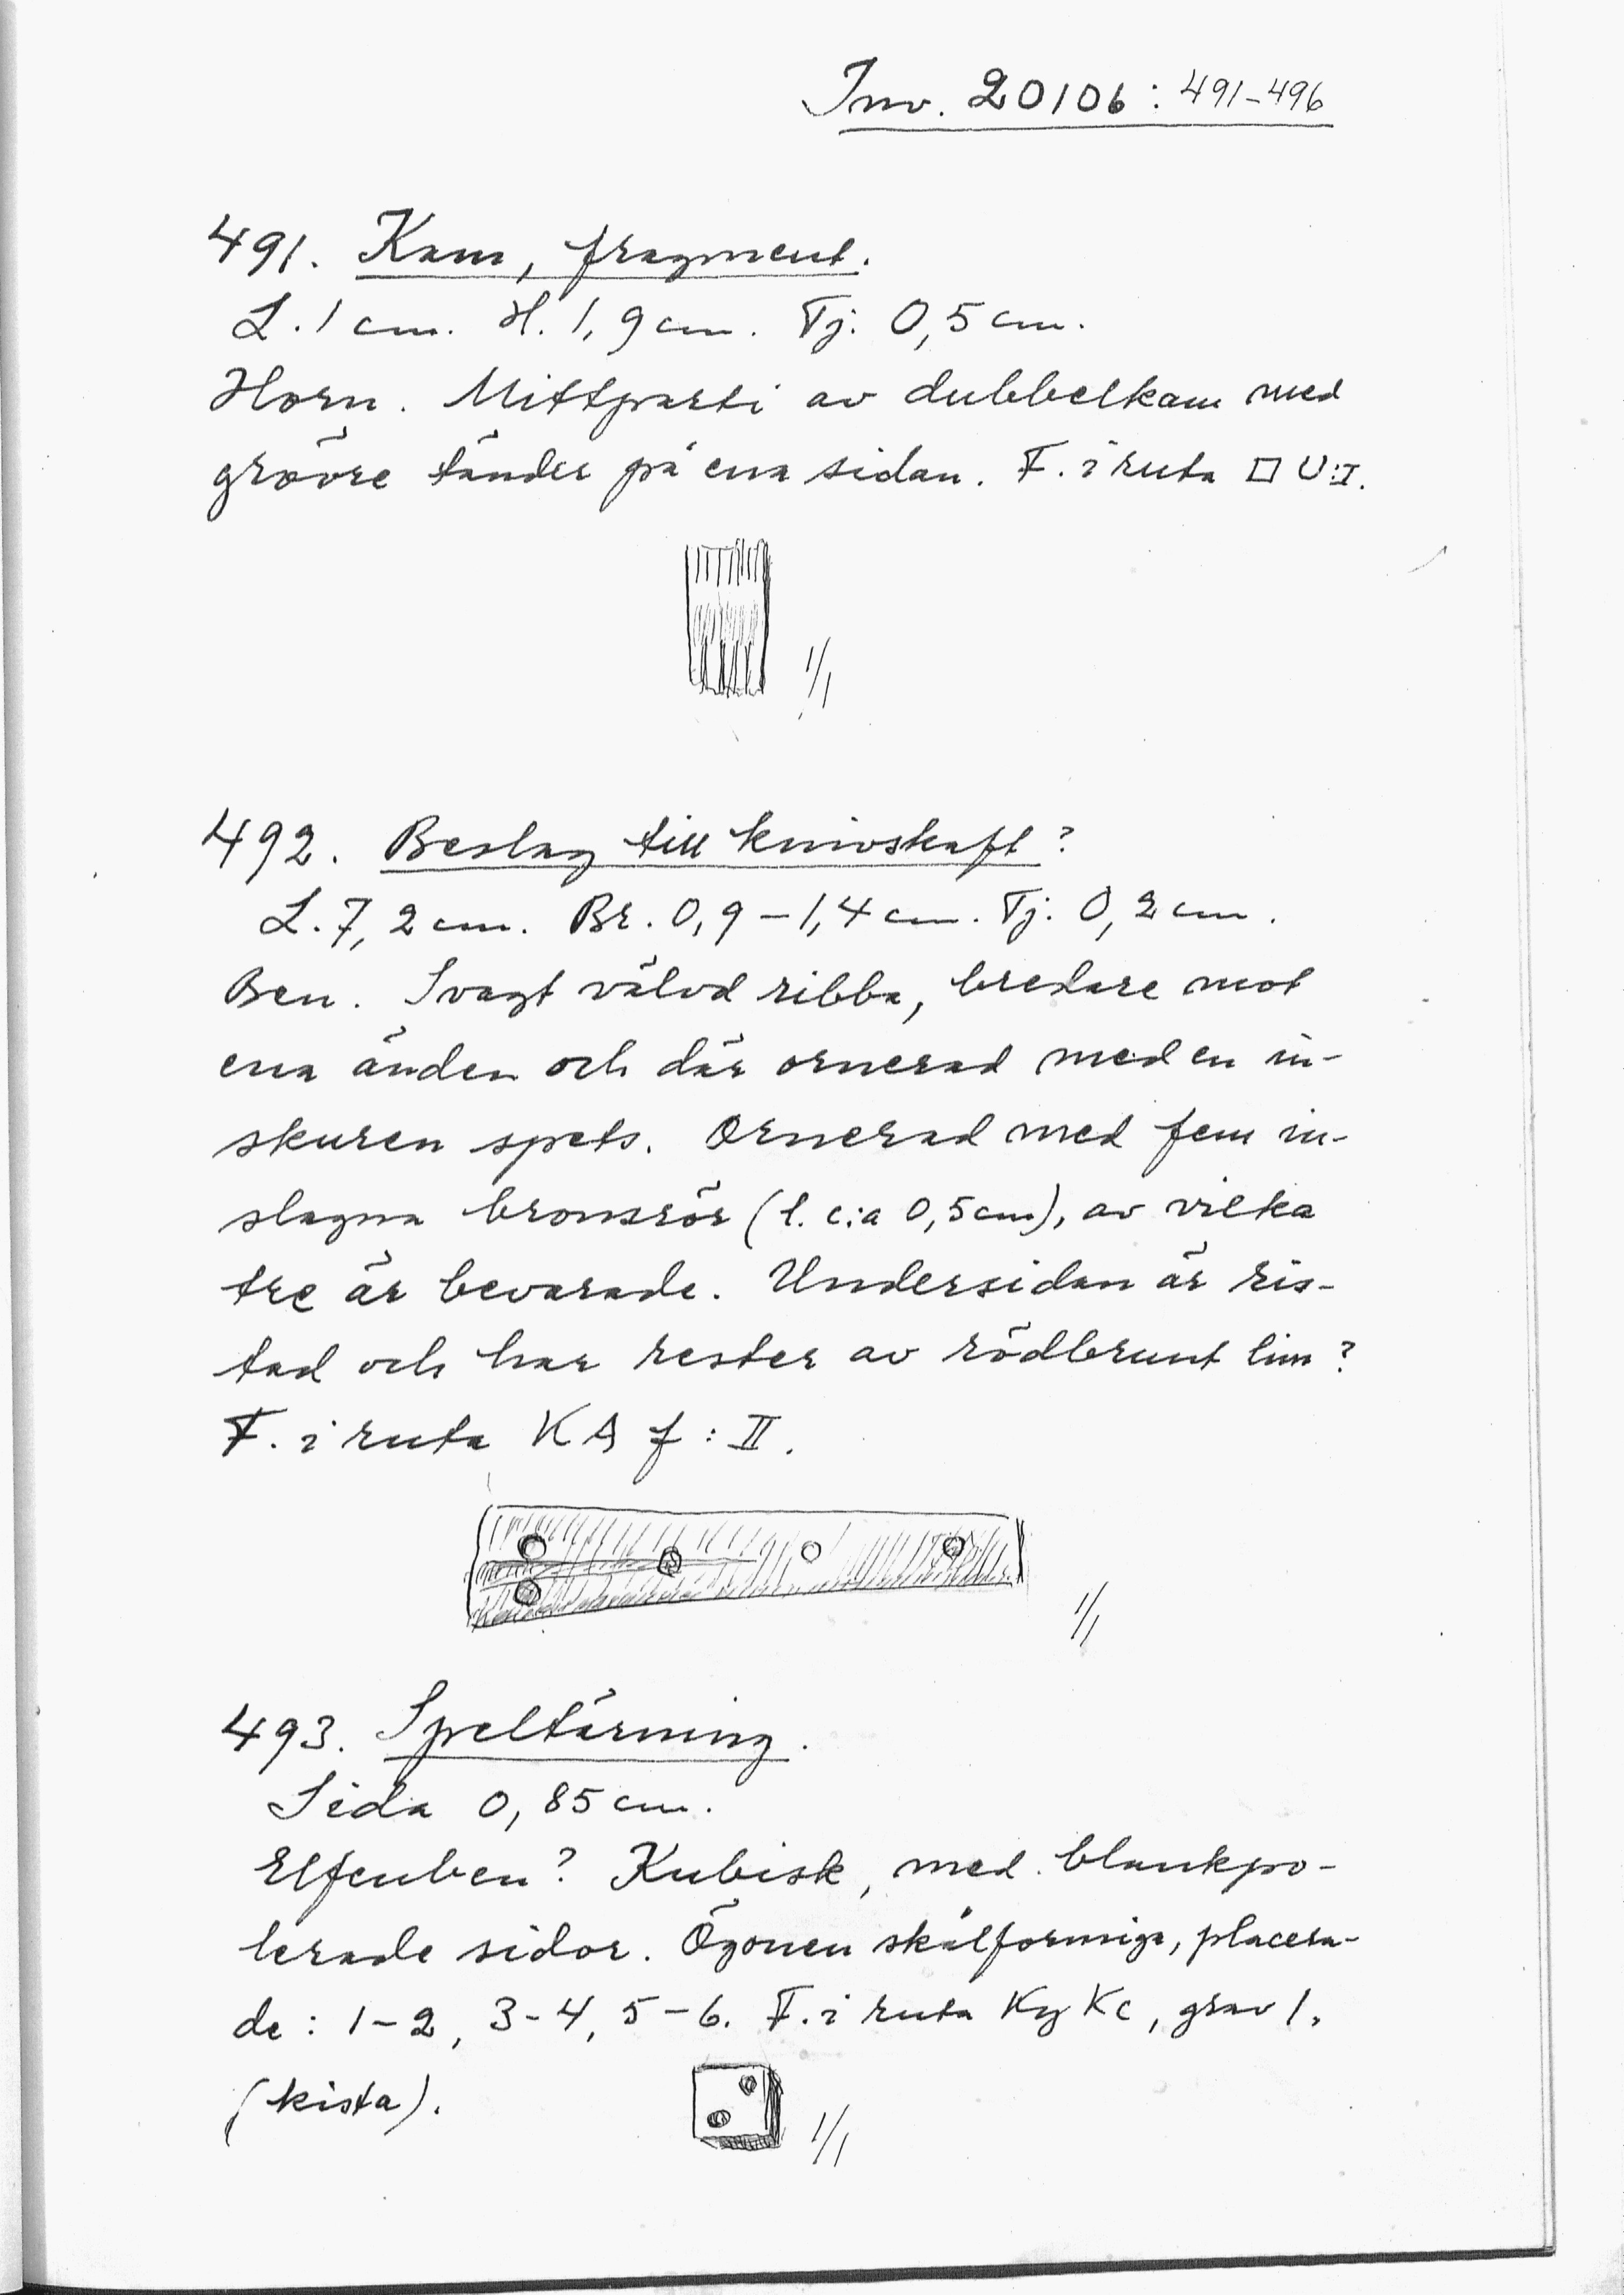 Inv. 20106: 491-496
491. Kam, fragment.
L. 1 cm. H. 1,9 cm. Tj. 0,5 cm.
Horn. Mittparti av dubbelkam med
grövre tänder på ena sidan. F. i ruta □ U:I.
1/1
492. Beslag till knivskaft?
L. 7,2 cm. Br. 0,9-1,4 cm. Tj. 0,2 cm.
Ben. Svagt välvd ribba, bredare mot
ena änden och där ornerad med en in-
skuren spets. Ornerad med fem in-
slagna bronsrör (l. c:a 0,5 cm), av vilka
tre är bevarade. Undersidan är ris-
tad och har rester av rödbrunt lim?
F. i ruta KA f: II.
1/1
493. Speltärning.
Sida 0,85 cm.
Elfenben? Kubisk, med blankpo-
lerade sidor. Ögonen skålformiga, placera-
de: 1-2, 3-4, 5-6. F. i ruta Kg Kc, grav 1.
(kista).
1/1